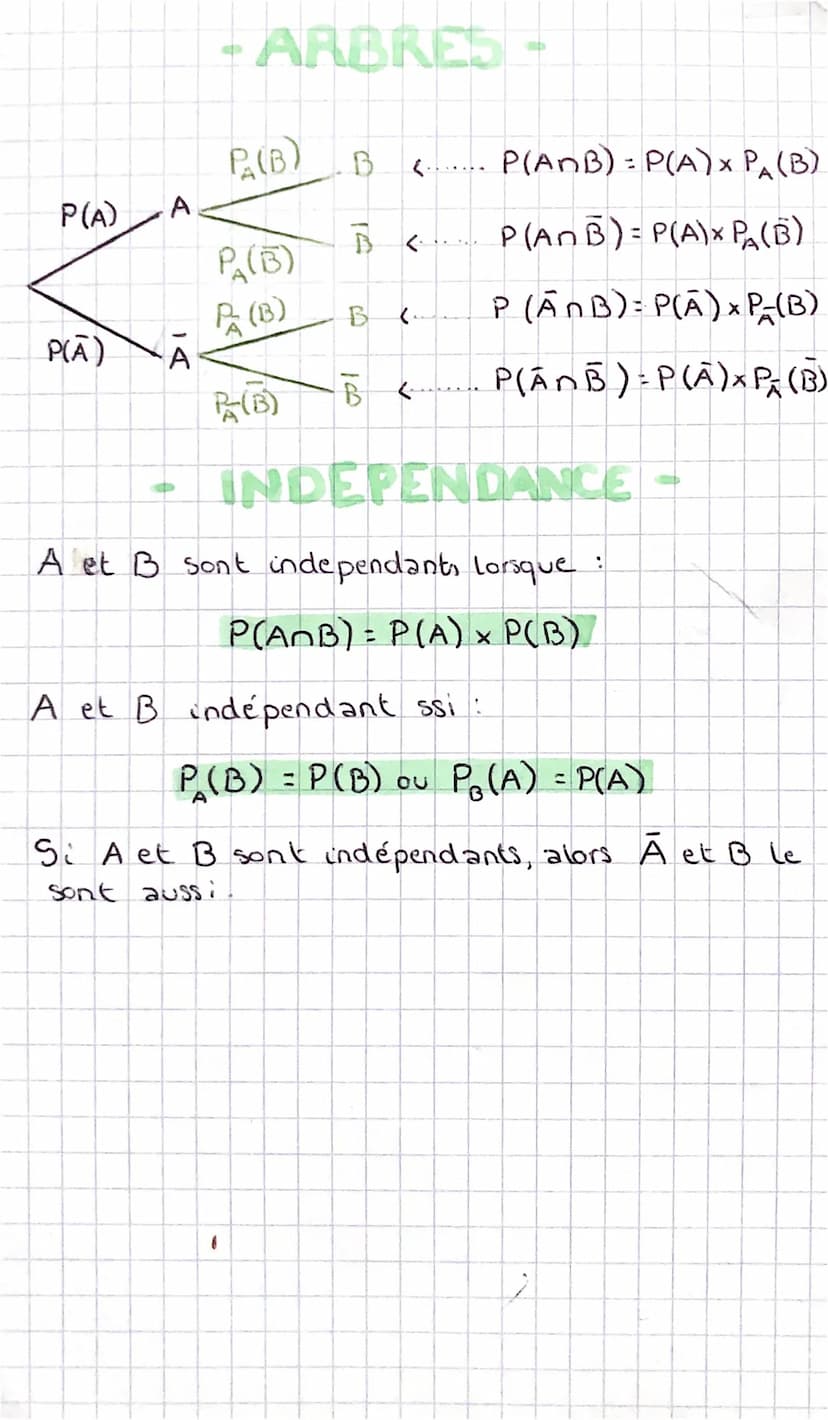 - ARBRES -
P_A(B) B <....... P(A∩B) = P(A) x P_A(B)
P(A) A
P_A(B̄) B̄ <..... P(A∩B̄) = P(A) x P_A(B̄)
P_Ā(B) B <.... P(Ā∩B) = P(Ā) x P_Ā(B)
P(Ā) Ā
P_Ā(B̄) B̄ <....... P(Ā∩B̄) = P(Ā) x P_Ā(B̄)
- INDEPENDANCE -
A et B sont independants lorsque :
P(A∩B) = P(A) x P(B)
A et B indépendant ssi :
P_A(B) = P(B) ou P_B(A) = P(A)
Si A et B sont indépendants, alors Ā et B le
sont aussi.